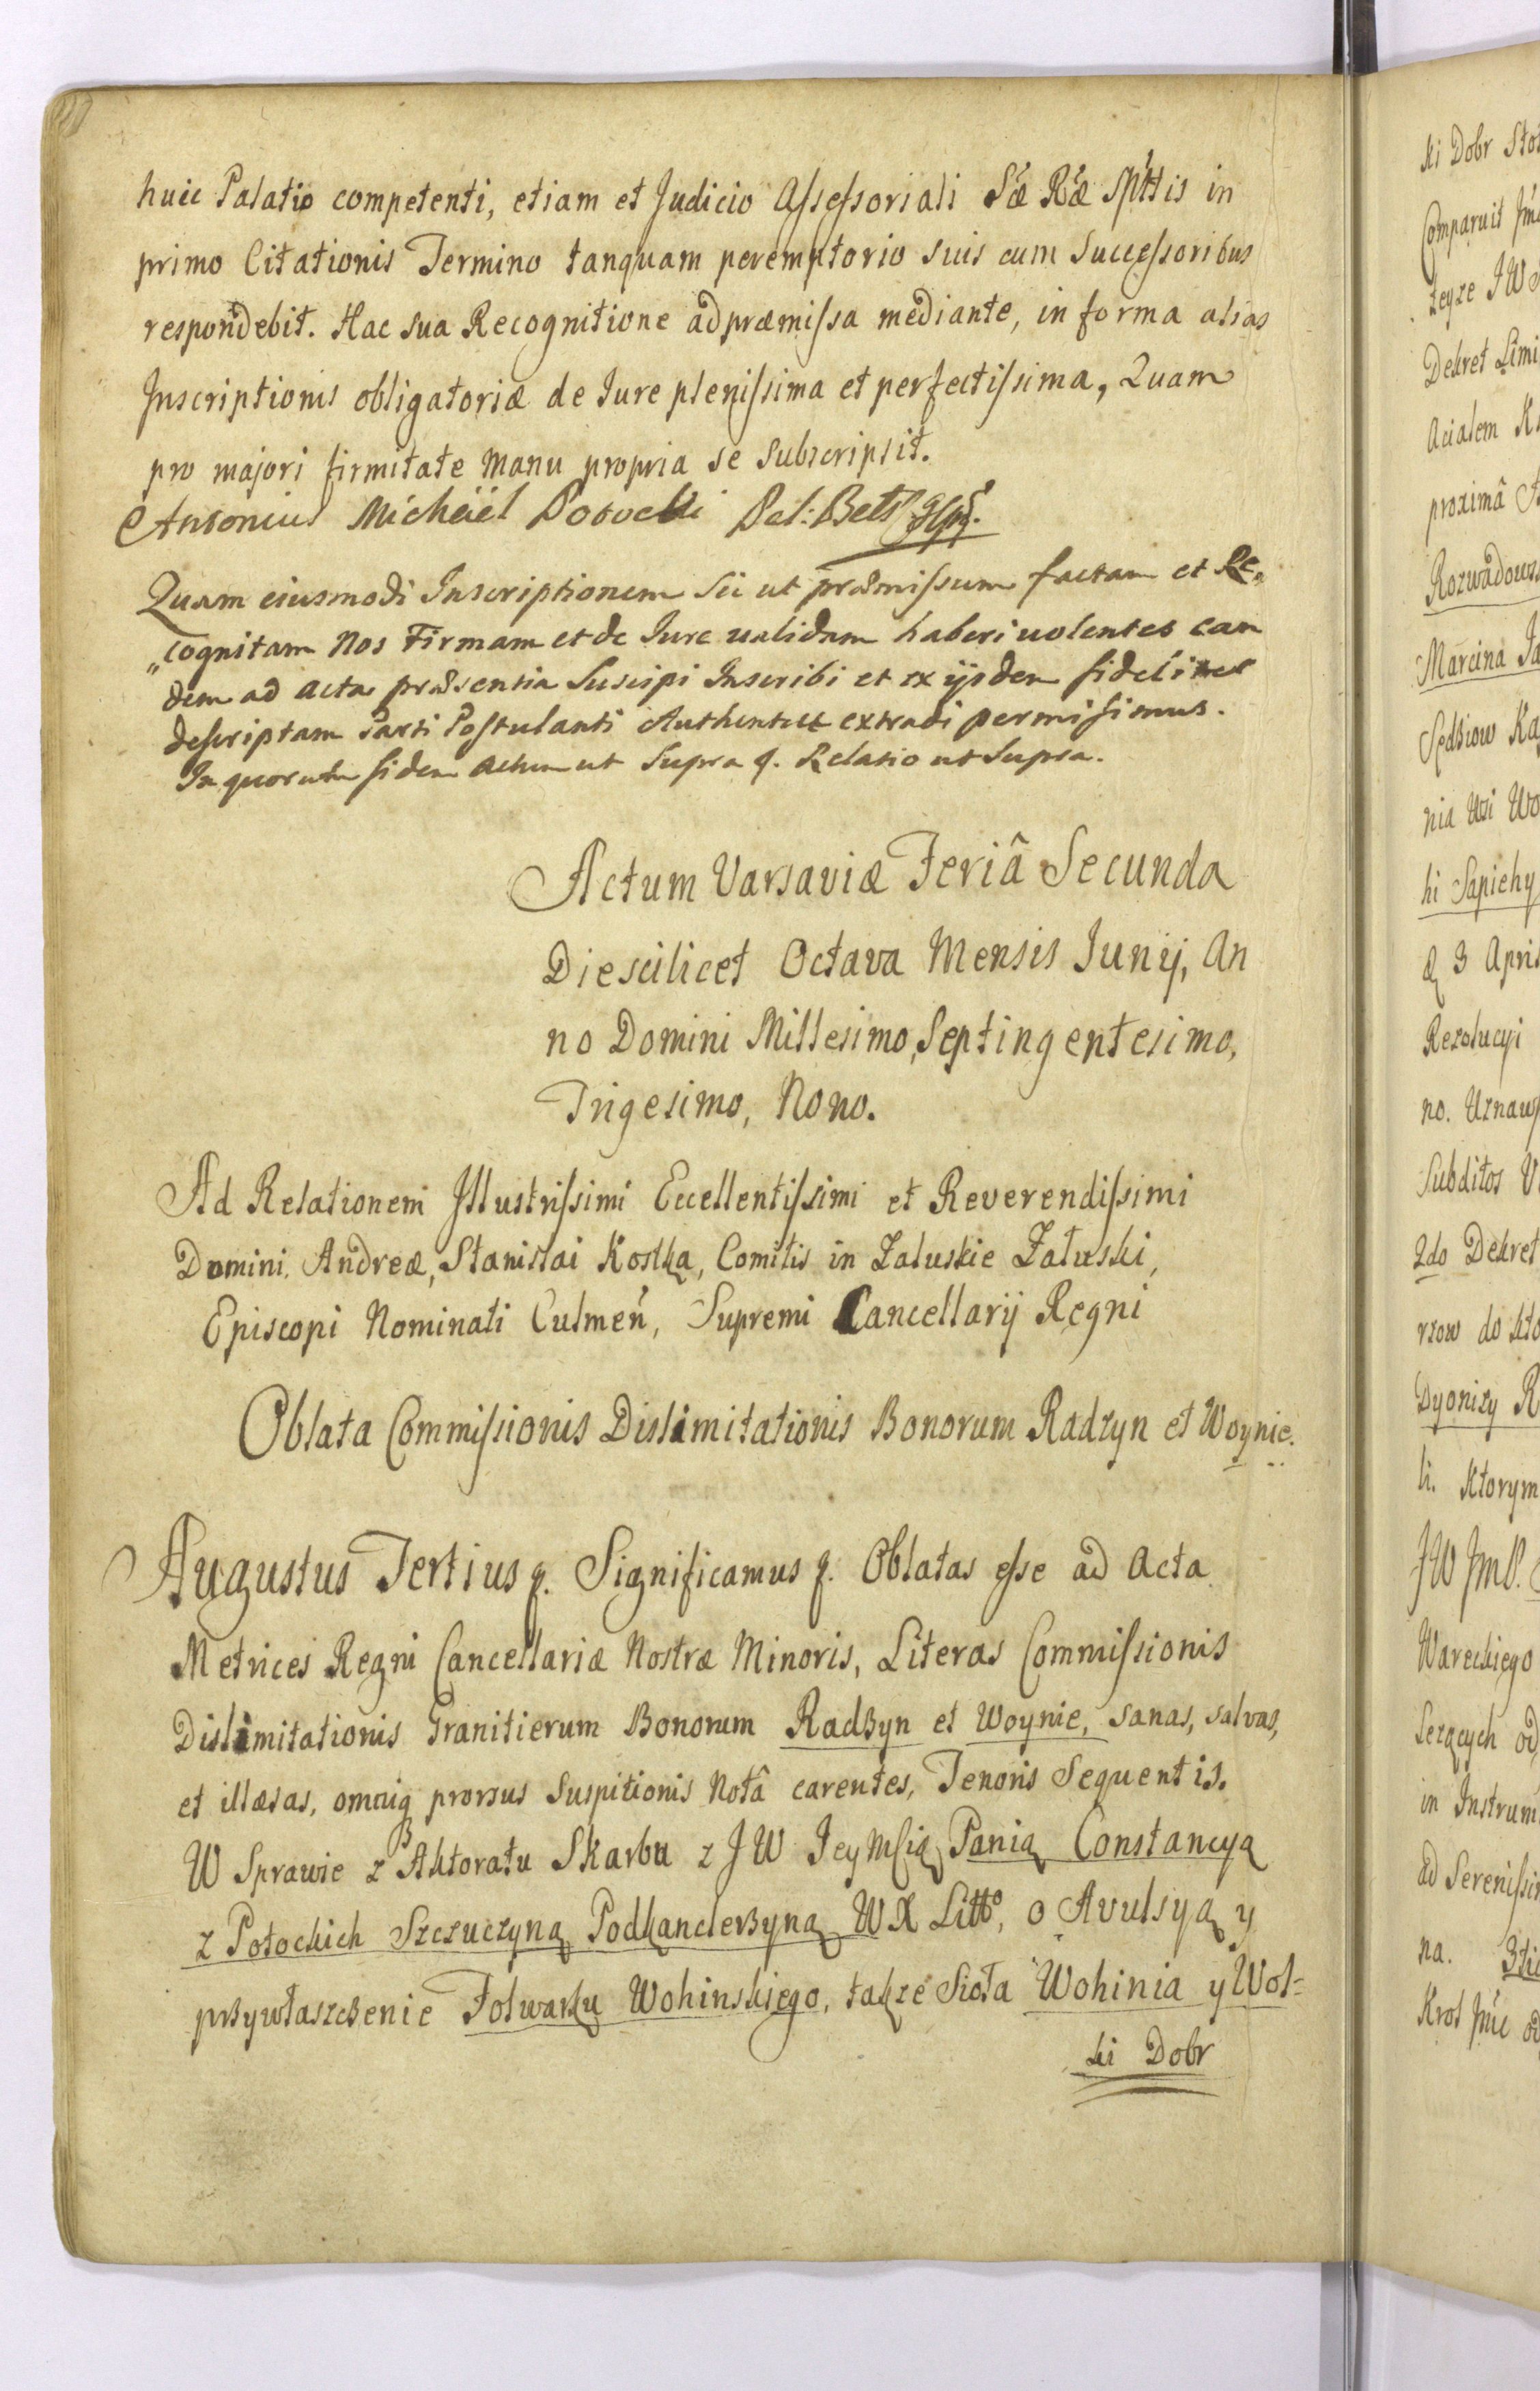 huic Palatio competenti, etiam et Judicio Assessoriali Sæ Ræ Spttis in
primo Citationis Termino tanquam peremptorio suis cum Successoribus
respondebit. Hac sua Recognitione ad præmissa mediante, in forma alias
Inscriptionis obligatoriæ de Iure plenissima et perfectissima, Quam
pro majori firmitate Manu propria se Subscripsit.
Antonius Michaël Potocki Pal: Belz
Quam eiusmodi Inscriptionem sic ut præmissum factam et Re„
„cognitam Nos Firmam et de Iure validam haberi uolentes ean
dem ad acta præsentia Suscipi Inscribi et ex ijsdem fideliter
descriptam Parti Postulanti Authentice extradi permisimus.
In quorum fidem Actum ut Supra &. Relatio ut Supra.
Actum Varsaviæ Feriâ Secunda
Die scilicet Octava Mensis Junij, An
no Domini Millesimo, Septingentesimo,
Trigesimo, Nono.
Ad Relationem Illustrissimi Eccellentissimi et Reverendissimi
Domini, Andreæ, Stanislai Kostka, Comitis in Zaluskie Załuski,
Episcopi Nominati Culmeń, Supremi Cancellarij Regni
Oblata Commissionis Dislimitationis Bonorum Radzyn et Woynie.
Augustus Tertius &. Significamus &. Oblatas esse ad Acta
Metrices Regni Cancellariæ Nostræ Minoris, Literas Commissionis
Dislimitationis Granitierum Bonorum Radzyn et Woynie, sanas, salvas,
et illæsas, omniq prorsus Suspitionis Notâ carentes, Tenoris Sequentis.
W Sprawie z Aktoratu Skarbu z JW JeyMścią Panią Constancyą
z Potockich Szczuczyną Podkanclerzyną WX Litto, o Avulsyą y
przywłaszczenie Folwarku Wohinskiego, także Sioła Wohinia y Wol=
ki Dobr
ki Dobr
Comparuit
teyze JW
Dekret
acialem
proximâ
Marcina
Sedziow
nia Wsi
hi Sapiehy
& 3 Apri
Rezolucyi
no. Uznaw
Subditos
2do Dekret
rzow do
Dyonizy
li. Ktorym
JW JmP.
Wareckiego
in Instrum
na.
Krol